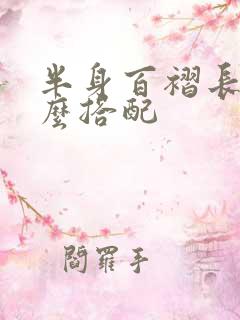 半身百褶長
麼搭配
閻羅手